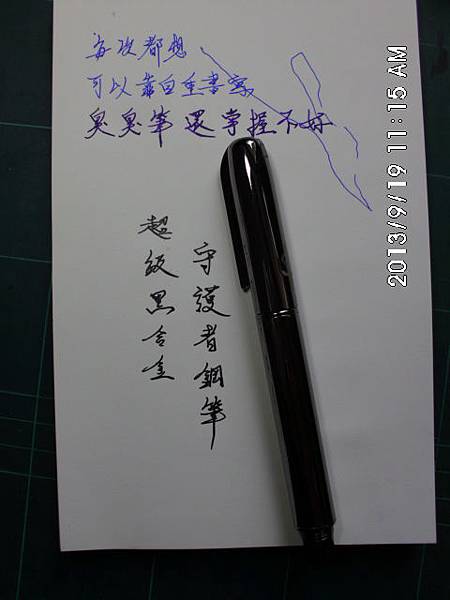 每次都想
可以靠自重書寫
臭臭筆還掌握不好
守護者鋼筆
超級黑合金
2013/9/19 11:15 AM